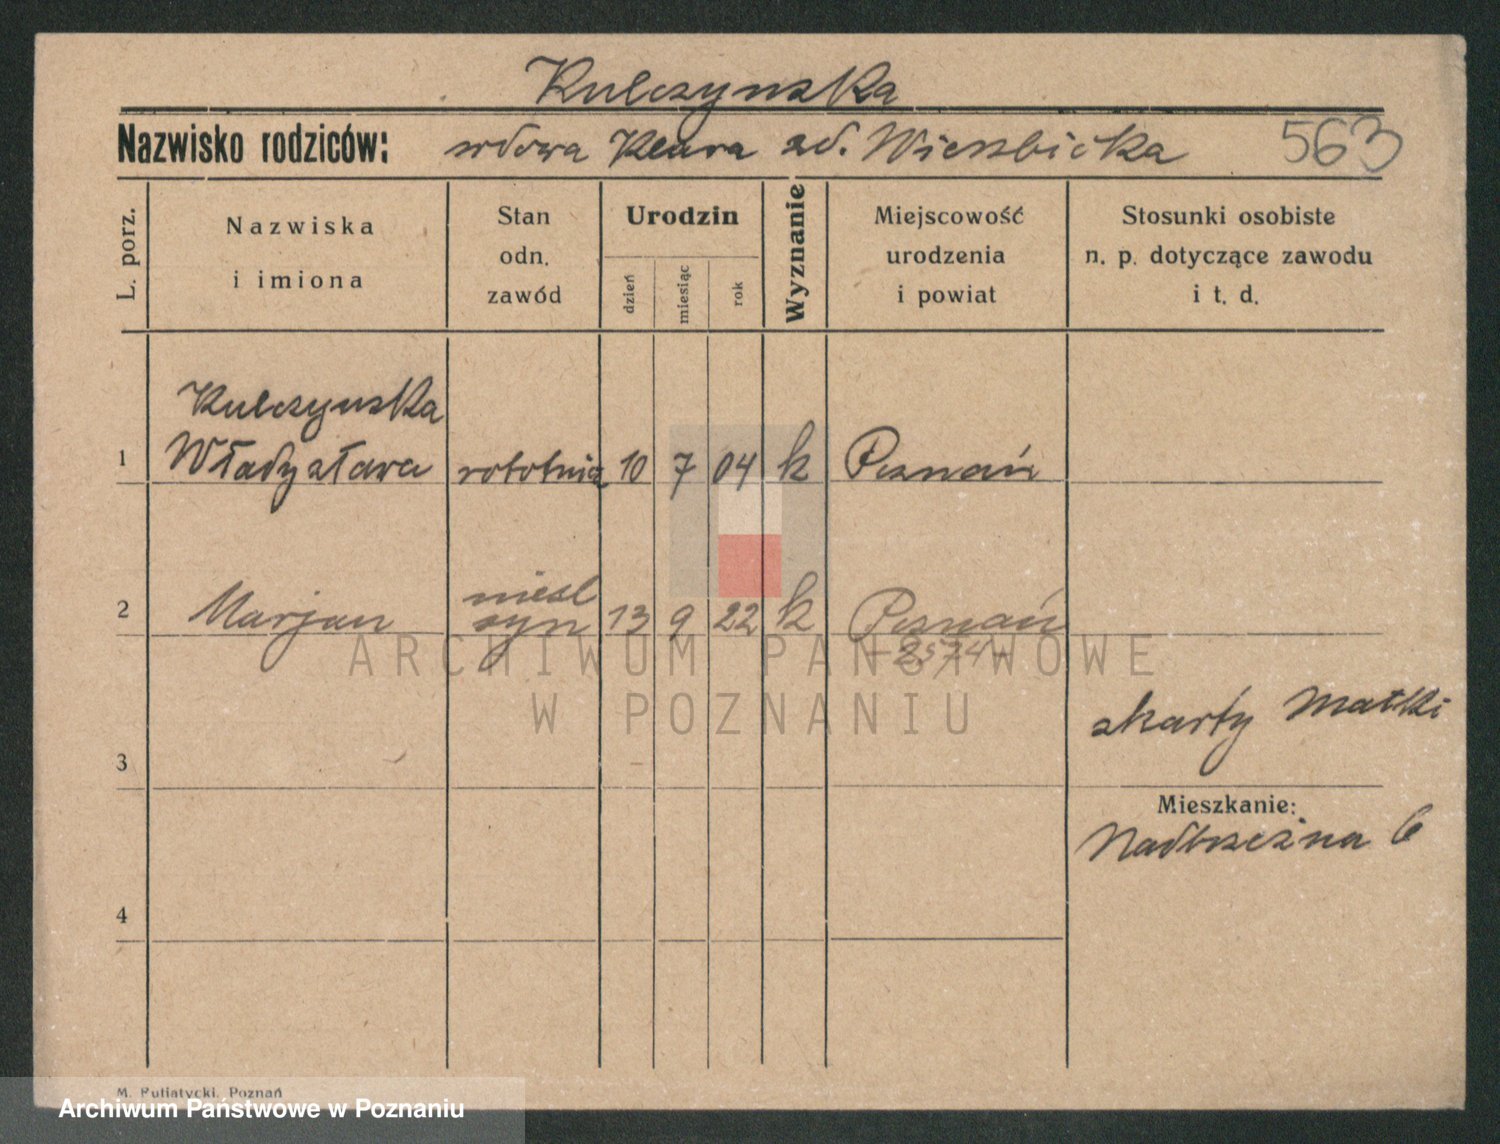 Kulczynska
Nazwisko rodziców: wdowa Klara zd. Wierzbicka 563
L. porz.
Nazwiska
i imiona
Stan
odn.
zawód
Urodzin
dzień
miesiąc
rok
Wyznanie
Miejscowość
urodzenia
i powiat
Stosunki osobiste
n. p. dotyczące zawodu
i t. d.
Kulczynska
1 Władysława robotnica 10 7 04 k Poznań
niesl
2 Marjan syn 13 9 22 k Poznań
-2574-
ARCHIWUM PAŃSTWOWE
W POZNANIU
zkarty Matki
3
Mieszkanie:
Nadbrzeżna 6
4
M. Putiatycki, Poznań
Archiwum Państwowe w Poznaniu